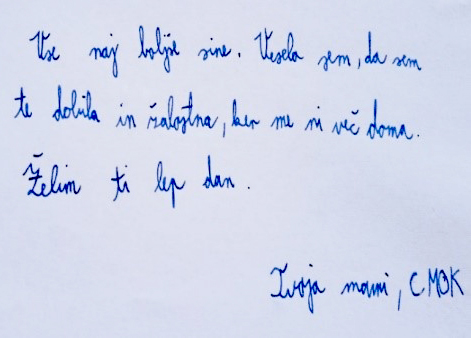 Vse naj boljše sine. Vesela sem, da sem
te dobila in žalostna, ker me ni več doma.
Želim ti lep dan.
Tvoja mami, CMOK